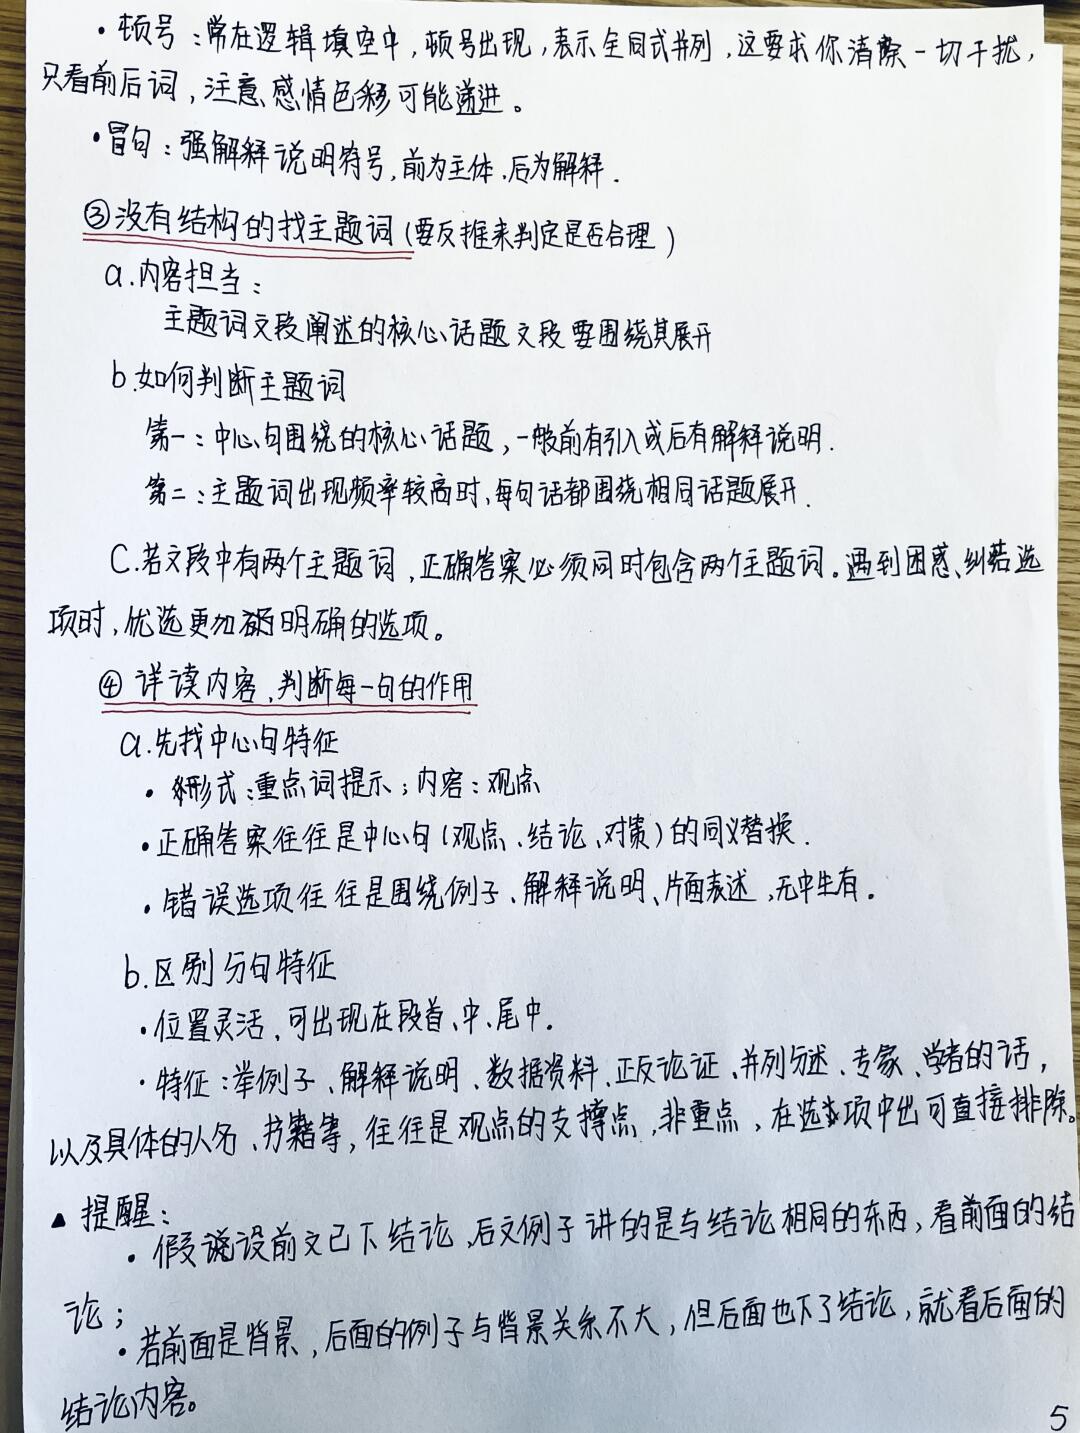 ·顿号:常在逻辑填空中,顿号出现,表示全同式并列,这要求你清除一切干扰,
只看前后词,注意感情色彩可能递进。
·冒句:强解释说明符号,前为主体.后为解释.
③没有结构的找主题词(要反推来判定是否合理)
a.内容担当:
主题词文段阐述的核心话题文段要围绕其展开
b.如何判断主题词
第一:中心句围绕的核心话题,一般前有引入或后有解释说明.
第二:主题词出现频率较高时,每句话都围绕相同话题展开.
C.若文段中有两个主题词,正确答案必须同时包含两个主题词。遇到困惑、纠结选
项时,优选更加明确的选项。
④详读内容,判断每一句的作用
a.先找中心句特征
·形式:重点词提示;内容:观点
·正确答案往往是中心句(观点、结论、对策)的同义替换.
·错误选项往往是围绕例子、解释说明、片面表述,无中生有。
b.区别分句特征
·位置灵活,可出现在段首、中、尾中.
·特征:举例子、解释说明、数据资料、正反论证、并列分述、专家、学者的话,
以及具体的人名、书籍等,往往是观点的支撑点,非重点,在选项中出可直接排除。
▲提醒:
·假设前文已下结论,后文例子讲的是与结论相同的东西,看前面的结
论;
·若前面是背景,后面的例子与背景关系不大,但后面也下了结论,就看后面的
结论内容。
5